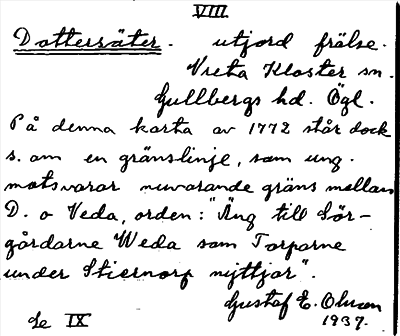 VIII.
Dottersäter. utjord frälse.
Vreta Kloster sn.
Gullbergs hd. Ögl.
På denna karta av 1772 står dock
s. om en gränslinje, som ung.
motsvarar nuvarande gräns mellan
D. o Veda, orden: "Äng till Sör-
gårdarne Weda som Torparne
under Stiernorp nyttjar".
Gustaf E. Olsson
1937.
Se IX